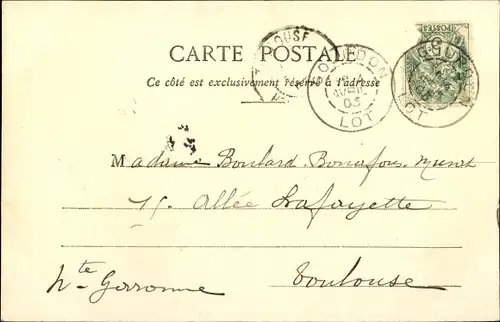 CARTE POSTALE
Ce côté est exclusivement réservé à l'adresse
OUSE
GOURDON
AVRIL
03
LOT
GOURDON
LOT
POSTES
Madame Boulard Bonafous-Murat
15. Allée Lafayette
Toulouse
Hte Garonne